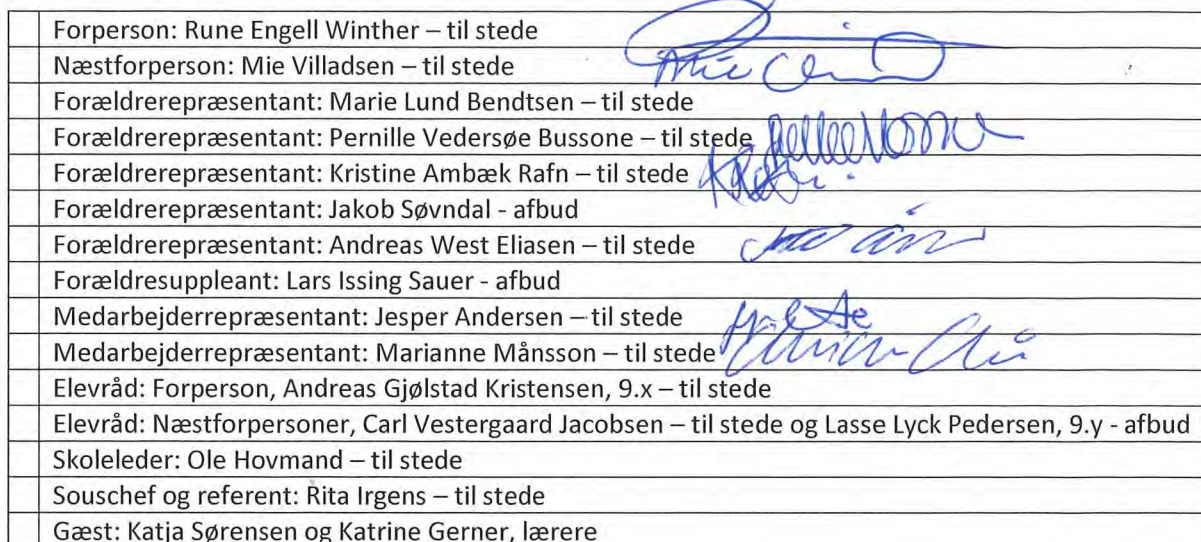 Forperson: Rune Engell Winther – til stede
Næstforperson: Mie Villadsen – til stede
Forældrerepræsentant: Marie Lund Bendtsen – til stede
Forældrerepræsentant: Pernille Vedersøe Bussone – til stede
Forældrerepræsentant: Kristine Ambæk Rafn – til stede
Forældrerepræsentant: Jakob Søvndal - afbud
Forældrerepræsentant: Andreas West Eliasen – til stede
Forældresuppleant: Lars Issing Sauer - afbud
Medarbejderrepræsentant: Jesper Andersen – til stede
Medarbejderrepræsentant: Marianne Månsson – til stede
Elevråd: Forperson, Andreas Gjølstad Kristensen, 9.x – til stede
Elevråd: Næstforpersoner, Carl Vestergaard Jacobsen – til stede og Lasse Lyck Pedersen, 9.y - afbud
Skoleleder: Ole Hovmand – til stede
Souschef og referent: Rita Irgens – til stede
Gæst: Katja Sørensen og Katrine Gerner, lærere